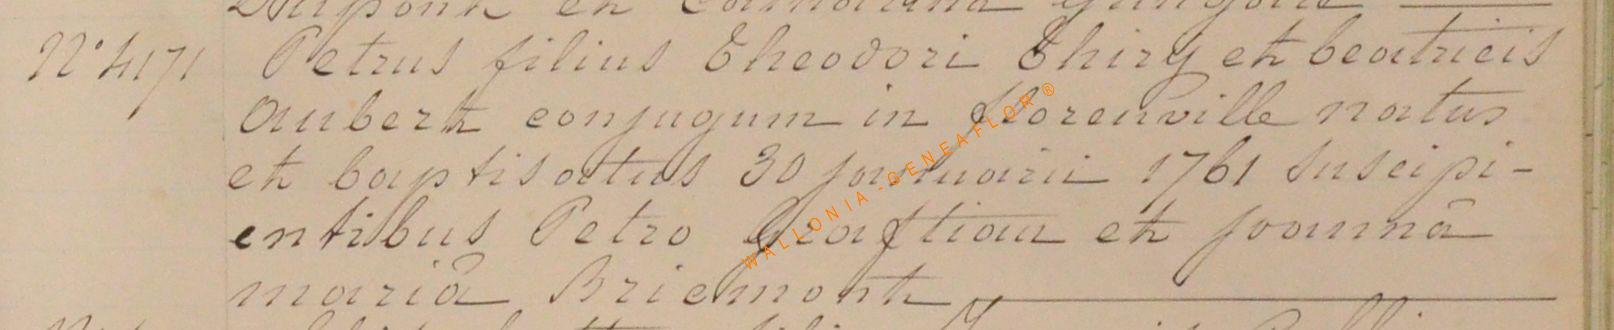 et
N° 4171 Petrus filius Theodori Thiry et beatricis
Aubert conjugum in florenville natus
et baptisatus 30 januarii 1761 suscipi-
entibus Petro et joannâ
mariâ Briemont
WALLONIA-GENEAFLOR®